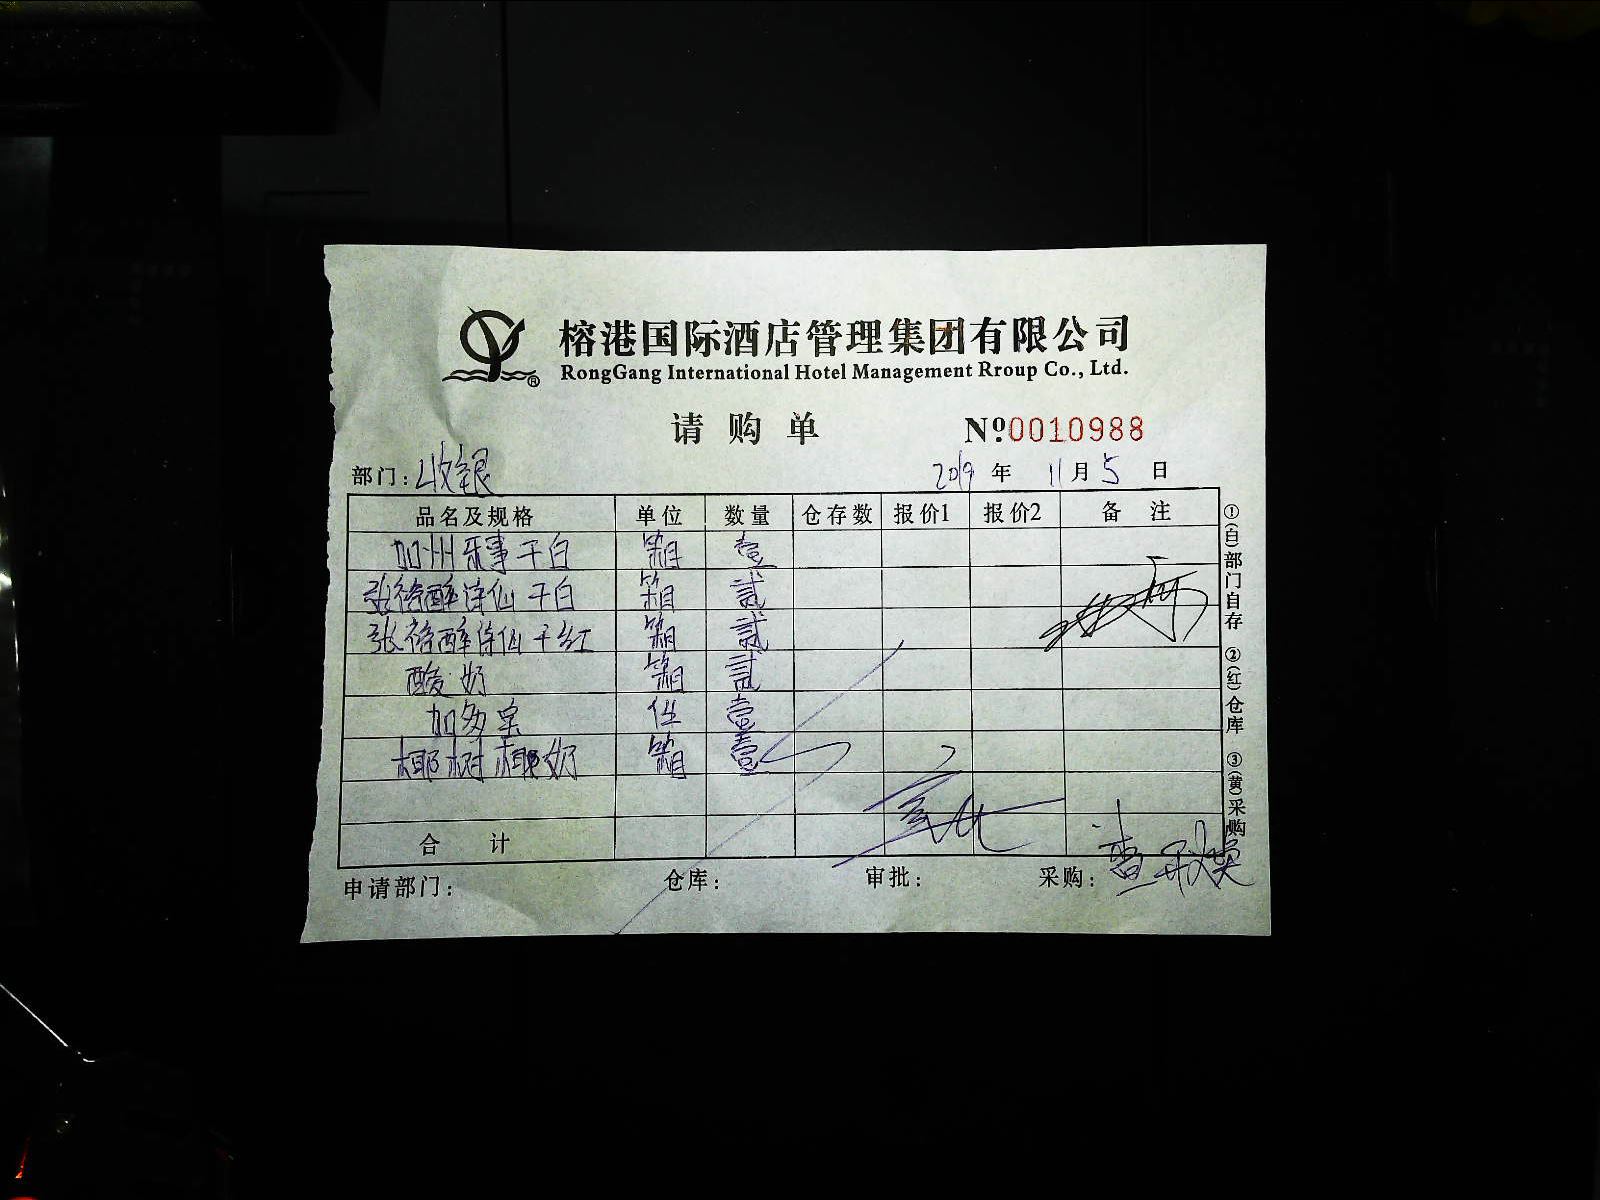 榕港国际酒店管理集团有限公司
RongGang International Hotel Management Rroup Co., Ltd.
®
请购单 Nº0010988
部门:收银 2019年11月5日
品名及规格 单位 数量 仓存数 报价1 报价2 备注
加州乐事干白 箱 壹
张裕醉诗仙干白 箱 贰
张裕醉诗仙干红 箱 贰
酸奶 箱 贰
加多宝 件 壹
椰树椰奶 箱 壹
合计
申请部门: 仓库: 审批: 采购:
①(白)部门自存 ②(红)仓库 ③(黄)采购